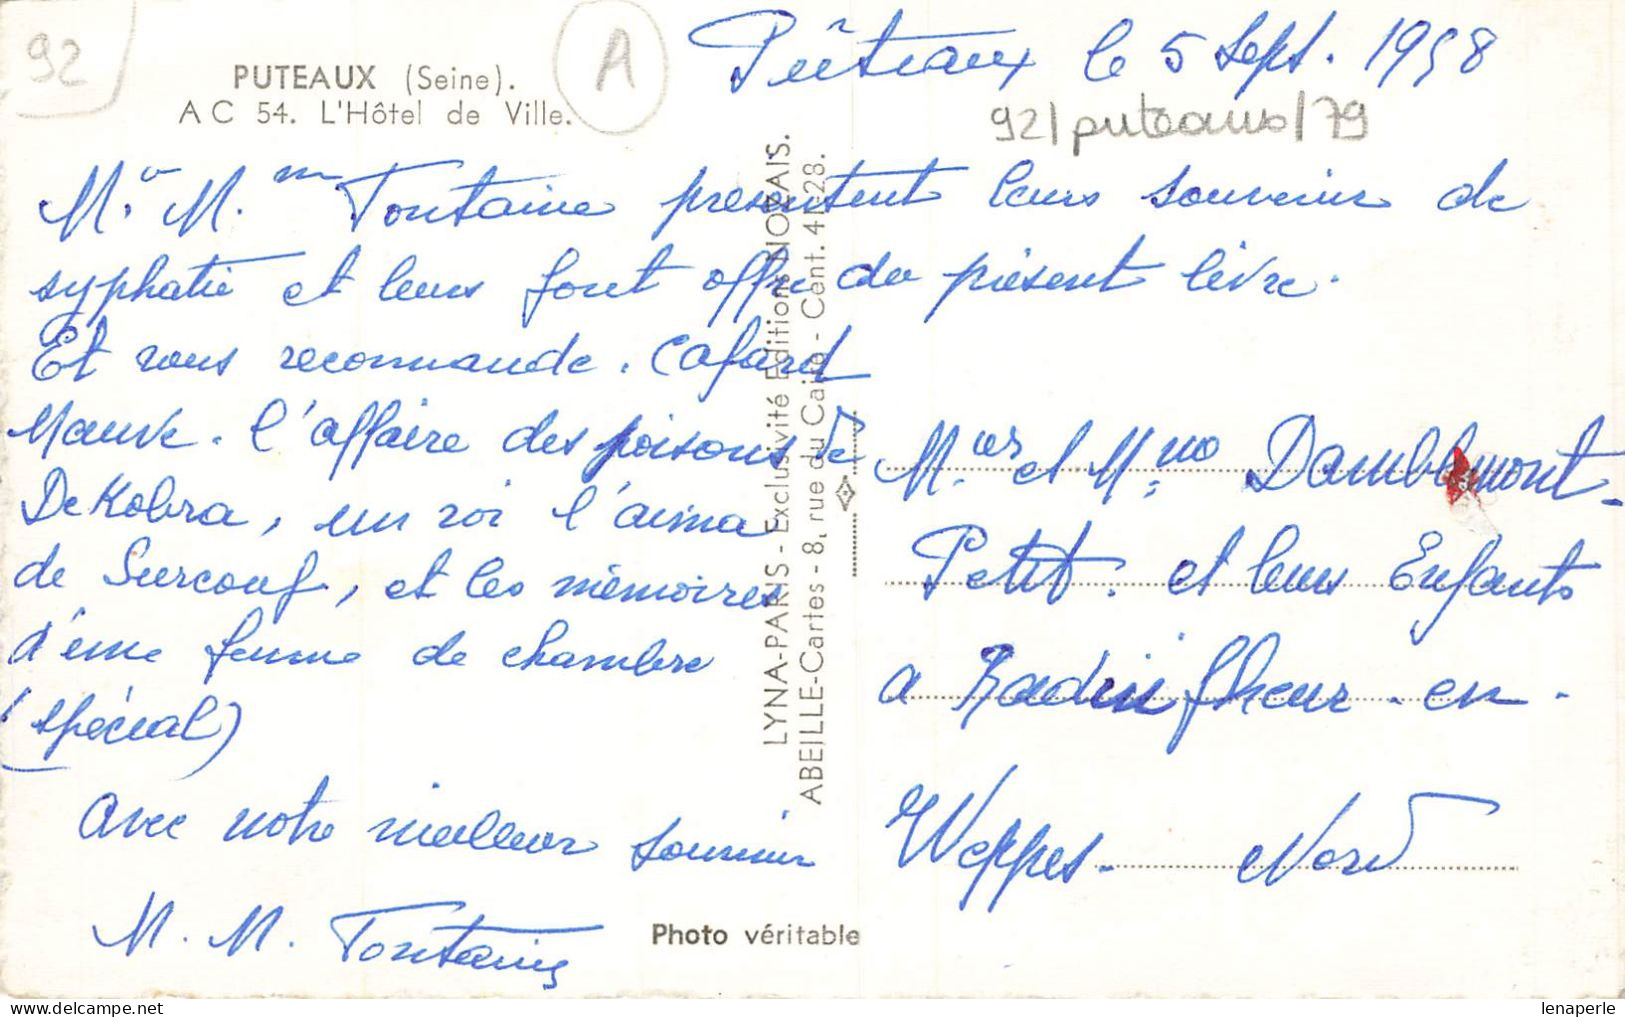 92
A
PUTEAUX (Seine).
A C 54. L'Hôtel de Ville.
Pûteaux le 5 Sept. 1958
92/puteaux/79
M. M.me Fontaine presentent leurs souvenir de
syphatie et leurs font offre du présent livre.
Et vous recommande. Cafard
Mauve. l'affaire des poisons de
DeKobra, un roi l'aima
de Surcouf, et les mémoires
d'une femme de chambre
(spécial)
avec notre meilleur souvenir
M. M. Fontaine
LYNA-PARIS - Exclusivité Editions NOYAIS.
ABEILLE-Cartes - 8, rue du Caire - Cent. 41-28.
Photo véritable
et Damblemont-
Petit. et leurs Enfants
a Radinfheur. en.
Weppes. Nord
lenaperle